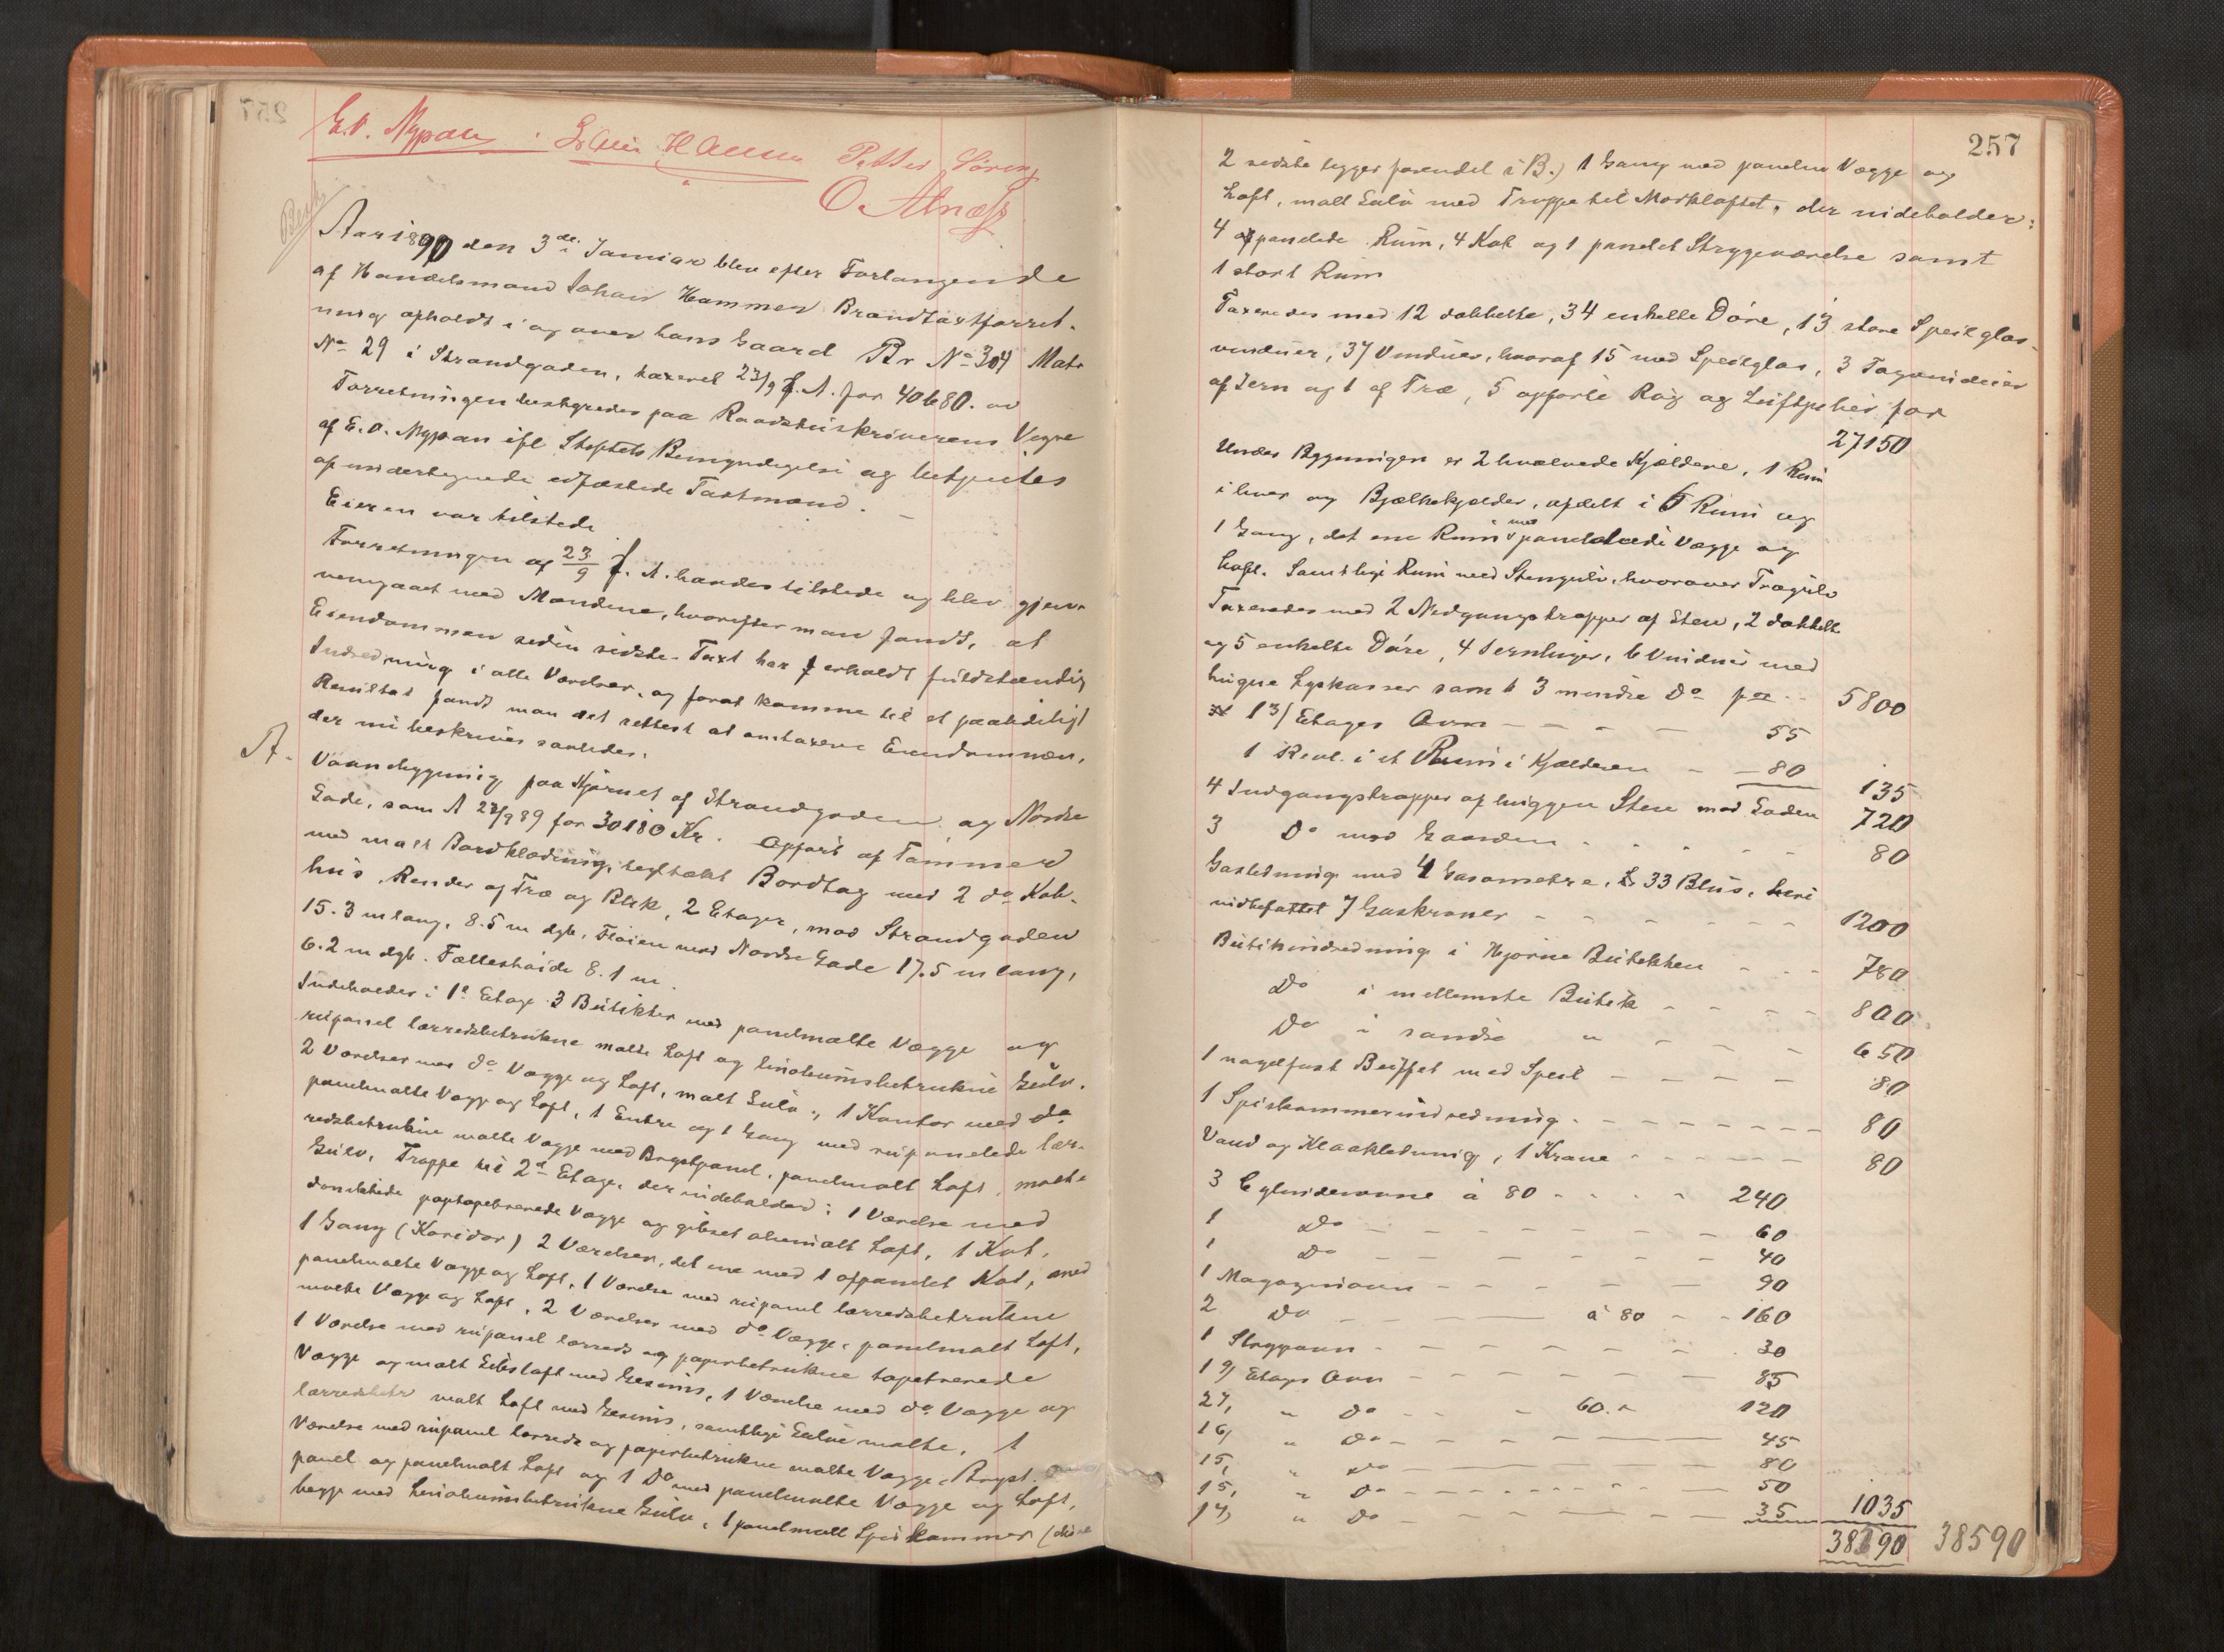 E. O. Nypan Petter Søreng
O. Alnæss
Aar 1890 den 3de Januar blev efter Forlangende
af Handelsmand Johan Hammer Brandtaxtforret-
ning afholdt i og over hans Gaard Br No 304 Matr
No 29 i Strandgaden, taxeret 23/9 f. A. for 40680.
Forretningen bestyredes paa Raadstuskriverens Vegne
af E. O. Nypan ifl Stiftets Bemyndigelse og betjentes
af undertegnede edfæstede Taxtmænd. —
Eieren var tilstede
Forretningen af 23/9 f. A. havdes tilstede og blev gjen-
nemgaaet med Mændene, hvorefter man fandt, at
Eiendommen siden sidste Taxt har erholdt fuldstændig
Indredning i alle Værelser, og forat komme til et paalideligt
Resultat fandt man det rettest at omtaxere Eiendommen,
der nu beskrives saaledes:
A. Vaanebygning paa Hjørnet af Strandgaden og Nordre
Gade, som A 23/9 89 for 30180 Kr. Opført af Tømmer
med malt Bordklædning, teglhækt Bordtag med 2 do Kob-
hus, Render af Træ og Blik, 2 Etager, mod Strandgaden
15.3 m lang, 8.5 m dyb, Fløien mod Nordre Gade 17.5 m lang,
6.2 m dyb. Fælleshøide 8.1 m.
Indeholder i 1ste Etage 3 Butikker med panelmalte Vægge og
rupanel lærredsbetrukne malte Loft og linoleumsbetrukne Gulv.
2 Værelser med do Vægge og Loft, malt Gulv, 1 Kontor med do
panelmalte Vægge og Loft, 1 Entre og 1 Gang med rupanelede lær-
redsbetrukne malte Vægge med Brystpanel, panelmalt Loft, malte
Gulv. Trappe til 2den Etage, der indeholder: 1 Værelse med
paptapetserede Vægge og gibset oliemalt Loft, 1 Kot,
1 Gang (Koridor) 2 Værelser, det ene med 1 afpanelet Kot, med
panelmalte Vægge og Loft, 1 Værelse med rupanel lærredsbetrukne
malte Vægge og Loft, 2 Værelser med do Vægge, panelmalt Loft,
1 Værelse med rupanel lærreds og papirbetrukne tapetserede
Vægge og malt Gibsloft med Gesims, 1 Værelse med do Vægge og
lærredsbetr malt Loft med Gesims, samtlige Gulve malte, 1
Værelse med rupanel lærreds og papirbetrukne malte Vægge, Bryst-
panel og panelmalt Loft og 1 Do med panelmalte Vægge og Loft,
begge med Linoleumsbetrukne Gulv, 1 panelmalt Spiskammer (disse
257
2 sidste ligger forendel i B.) 1 Gang med panelne Vægge og
Loft, malt Gulv med Trappe til Mørkloftet, der indeholder:
4 afpanelede Rum, 4 Kot og 1 panelet Strygeværelse samt
1 stort Rum
Taxeredes med 12 dobbelte, 34 enkelte Døre, 13 store Speilglas-
vinduer, 37 Vinduer, hvoraf 15 med Speilglas, 3 Tagvinduer
af Jern og 1 af Træ, 5 opførte Røg og Luftpiber for
27150
Under Bygningen er 2 hvælvede Kjældere, 1 Rum
i hver og Bjælkekjælder, afdelt i 6 Rum og
1 Gang, det ene Rum med panelede Vægge og
Loft. Samtlige Rum med Stengulv, hvorover Trægulv
Taxeredes med 2 Nedgangstrapper af Sten, 2 dobbelte
og 5 enkelte Døre, 4 Jernluger, 6 Vinduer med
hugne Lyskasser samt 3 mindre Do for 5800
1 3/ Etages Ovn — — — 55
1 Reol. i et Rum i Kjælderen — 80 135
4 Indgangstrapper af huggen Sten mod Gaden 720
3 Do mod Gaarden 80
Gasledning med 4 Gasometre, 33 Blus, heri
indbefattet 7 Gaskroner — — — 1200
Butikindredning i Hjørne Butikken — 780
Do i mellemste Butik — — — 800
Do i søndre " — — — 650
1 nagelfast Buffet med Speil — — — 80
1 Spiskammerindredning — — — 80
Vand og Kloakledning, 1 Krane — — — 80
3 Cylinderovne à 80 — 240
1 Do — — — 60
1 Do — — — 40
1 Magazinovn — — — 90
2 Do — — à 80 — 160
1 Strygovn — — — 30
1 9/ Etages Ovn — — — 85
2 7, " Do — — 60. " 120
1 6, " Do — — — 45
1 5, " Do — — — 80
1 5, " Do — — — 50
1 4, " Do — — — 35 1035
38590 38590